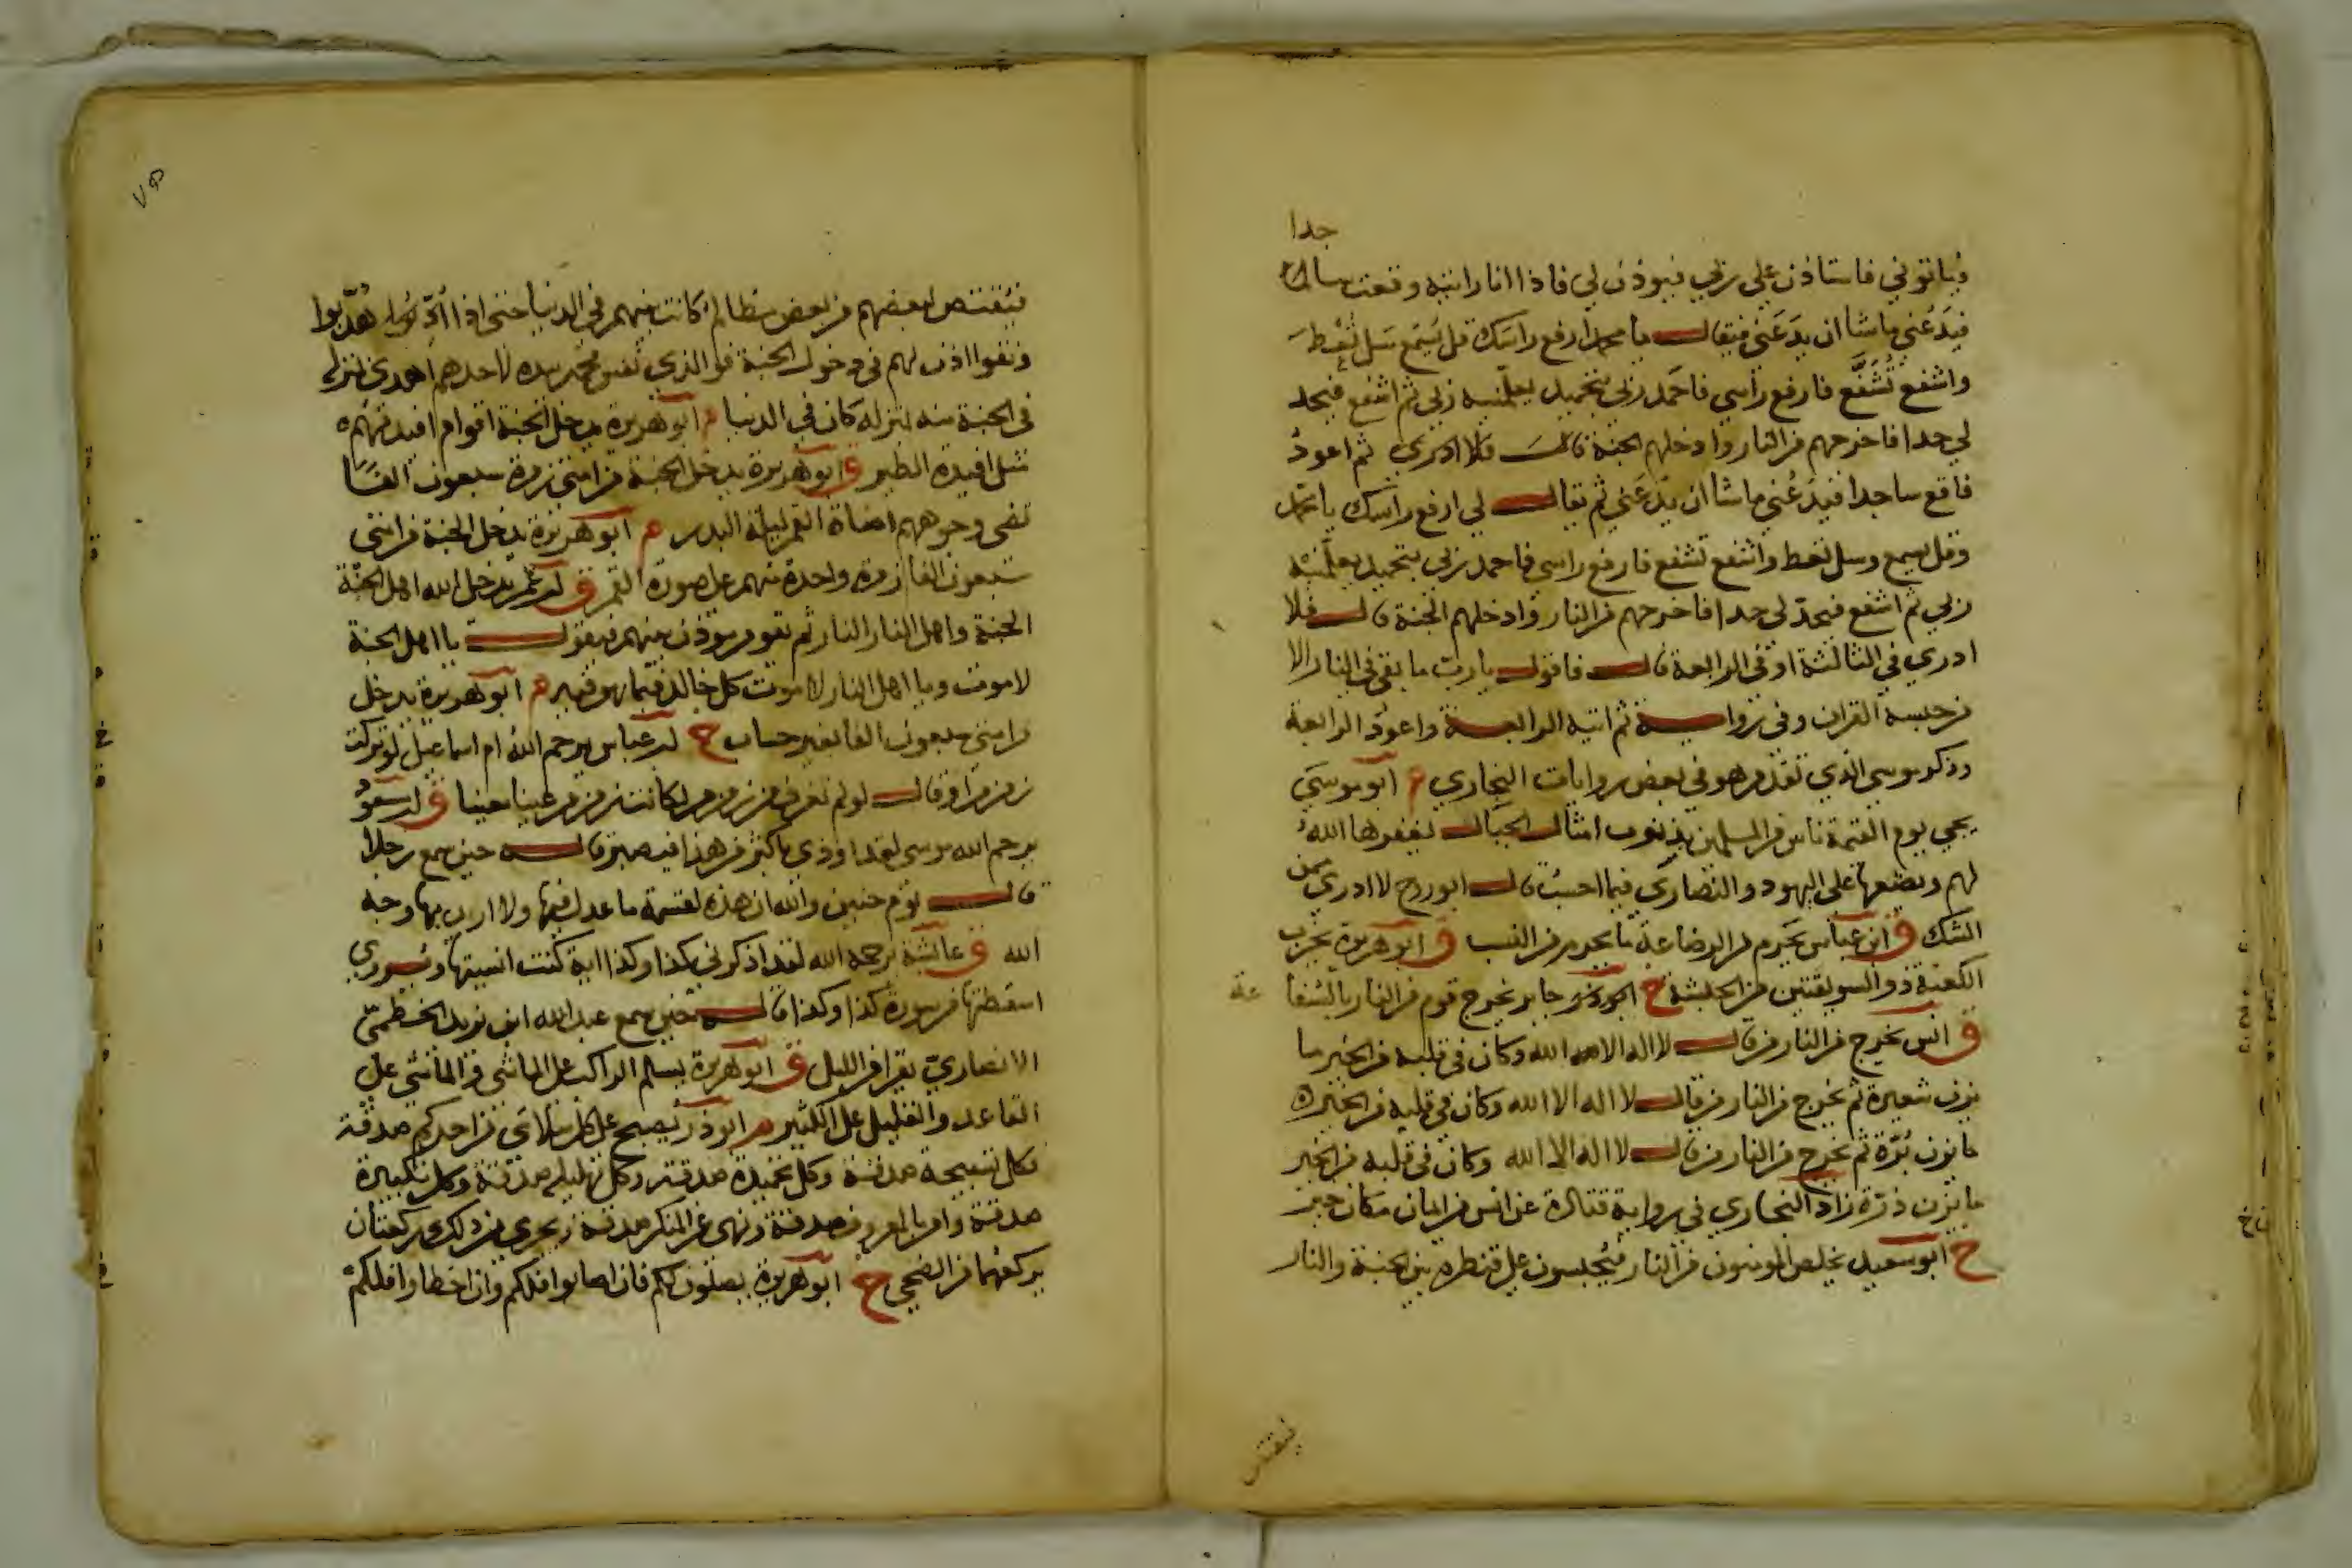 جدا
فياتوني فاستاذن على ربي فيوذن لي فاذا انا رايته وقعت ساجدا
فيدعني ما شا ان يدعني فيقال يا محمد ارفع راسك قل يسمع سل تعط
واشفع تشفع فارفع راسي فاحمد ربي بتحميد يعلمنيه ربي ثم اشفع فيحد
لي حدا فاخرجهم من النار وادخلهم الجنة قال فلا ادري ثم اعود
فاقع ساجدا فيدعني ما شا ان يدعني ثم يقال لي ارفع راسك يا محمد
وقل يسمع وسل تعط واشفع تشفع فارفع راسي فاحمد ربي بتحميد يعلمنيه
ربي ثم اشفع فيحد لي حدا فاخرجهم من النار وادخلهم الجنة قال فلا
ادري في الثالثة او في الرابعة قال فاقول يا رب ما بقي في النار الا
من حبسه القران وفي رواية ثم اتيه الرابعة واعود الرابعة
وذكر موسى الذي تقدم هو في بعض روايات البخاري م ابو موسى
يجي يوم القيمة ناس من المسلمين بذنوب امثال الجبال يغفرها الله
لهم ويضعها على اليهود والنصارى فيما احسب قال ابو روح لا ادري ممن
الشك ق ابن عباس يحرم من الرضاعة ما يحرم من النسب ق ابو هريرة يخرب
الكعبة ذو السويقتين من الحبشة خ جابر يخرج قوم من النار بالشفا عة
ق انس يخرج من النار من قال لا اله الا الله وكان في قلبه من الخير ما
يزن شعيرة ثم يخرج من النار من قال لا اله الا الله وكان في قلبه من الخير
ما يزن برة ثم يخرج من النار من قال لا اله الا الله وكان في قلبه من الخير
ما يزن ذرة زاد البخاري في رواية قتادة عن انس من ايمان مكان خير
خ ابو سعيد يخلص المومنون من النار فيحبسون على قنطره بين الجنة والنار
فيقتص
فيقتص لبعضهم من بعض مظالم كانت بينهم في الدنيا حتى اذا هذبوا
ونقوا اذن لهم في دخول الجنة فو الذي نفس محمد بيده لاحدهم اهدى بمنزله
في الجنة منه بمنزله كان في الدنيا م ابو هريرة يدخل الجنة اقوام افيدتهم
مثل افيدة الطير ق ابو هريرة يدخل الجنة من امتي زمرة سبعون الفا
تضي وجوههم اضاة القمر ليلة البدر م ابو هريرة يدخل الجنة من امتي
سبعون الفا زمرة واحدة منهم على صورة القمر ق ابن عمر يدخل الله اهل الجنة
الجنة واهل النار النار ثم يقوم موذن بينهم فيقول يا اهل الجنة
لا موت ويا اهل النار لا موت كل خالد فيما هو فيه م ابو هريرة يدخل
من امتي سبعون الفا بغير حساب خ ابن عباس يرحم الله ام اسماعيل لو تركت
زمزم او قال لو لم تغرف من زمزم لكانت زمزم عينا معينا ق ابن مسعود
يرحم الله موسى لقد اوذي باكثر من هذا فصبر قال حين سمع رجلا
قال يوم حنين والله ان هذه لقسمة ما عدل فيها ولا اريد بها وجه
الله ق عائشة يرحمه الله لقد اذكرني كذا وكذا اية كنت انسيتها ويروى
اسقطتها من سورة كذا وكذا قال حين سمع عبد الله ابن يزيد الخطمي
الانصاري يقرا من الليل ق ابو هريرة يسلم الراكب على الماشي والماشي على
القاعد والقليل على الكثير م ابو ذر يصبح على كل سلامى من احدكم صدقة
فكل تسبيحة صدقة وكل تحميدة صدقة وكل تهليلة صدقة وكل تكبيرة
صدقة وامر بالمعروف صدقة ونهي عن المنكر صدقة ويجزي من ذلك ركعتان
يركعهما من الضحى خ ابو هريرة يصلون لكم فان اصابوا فلكم وان اخطاوا فلكم